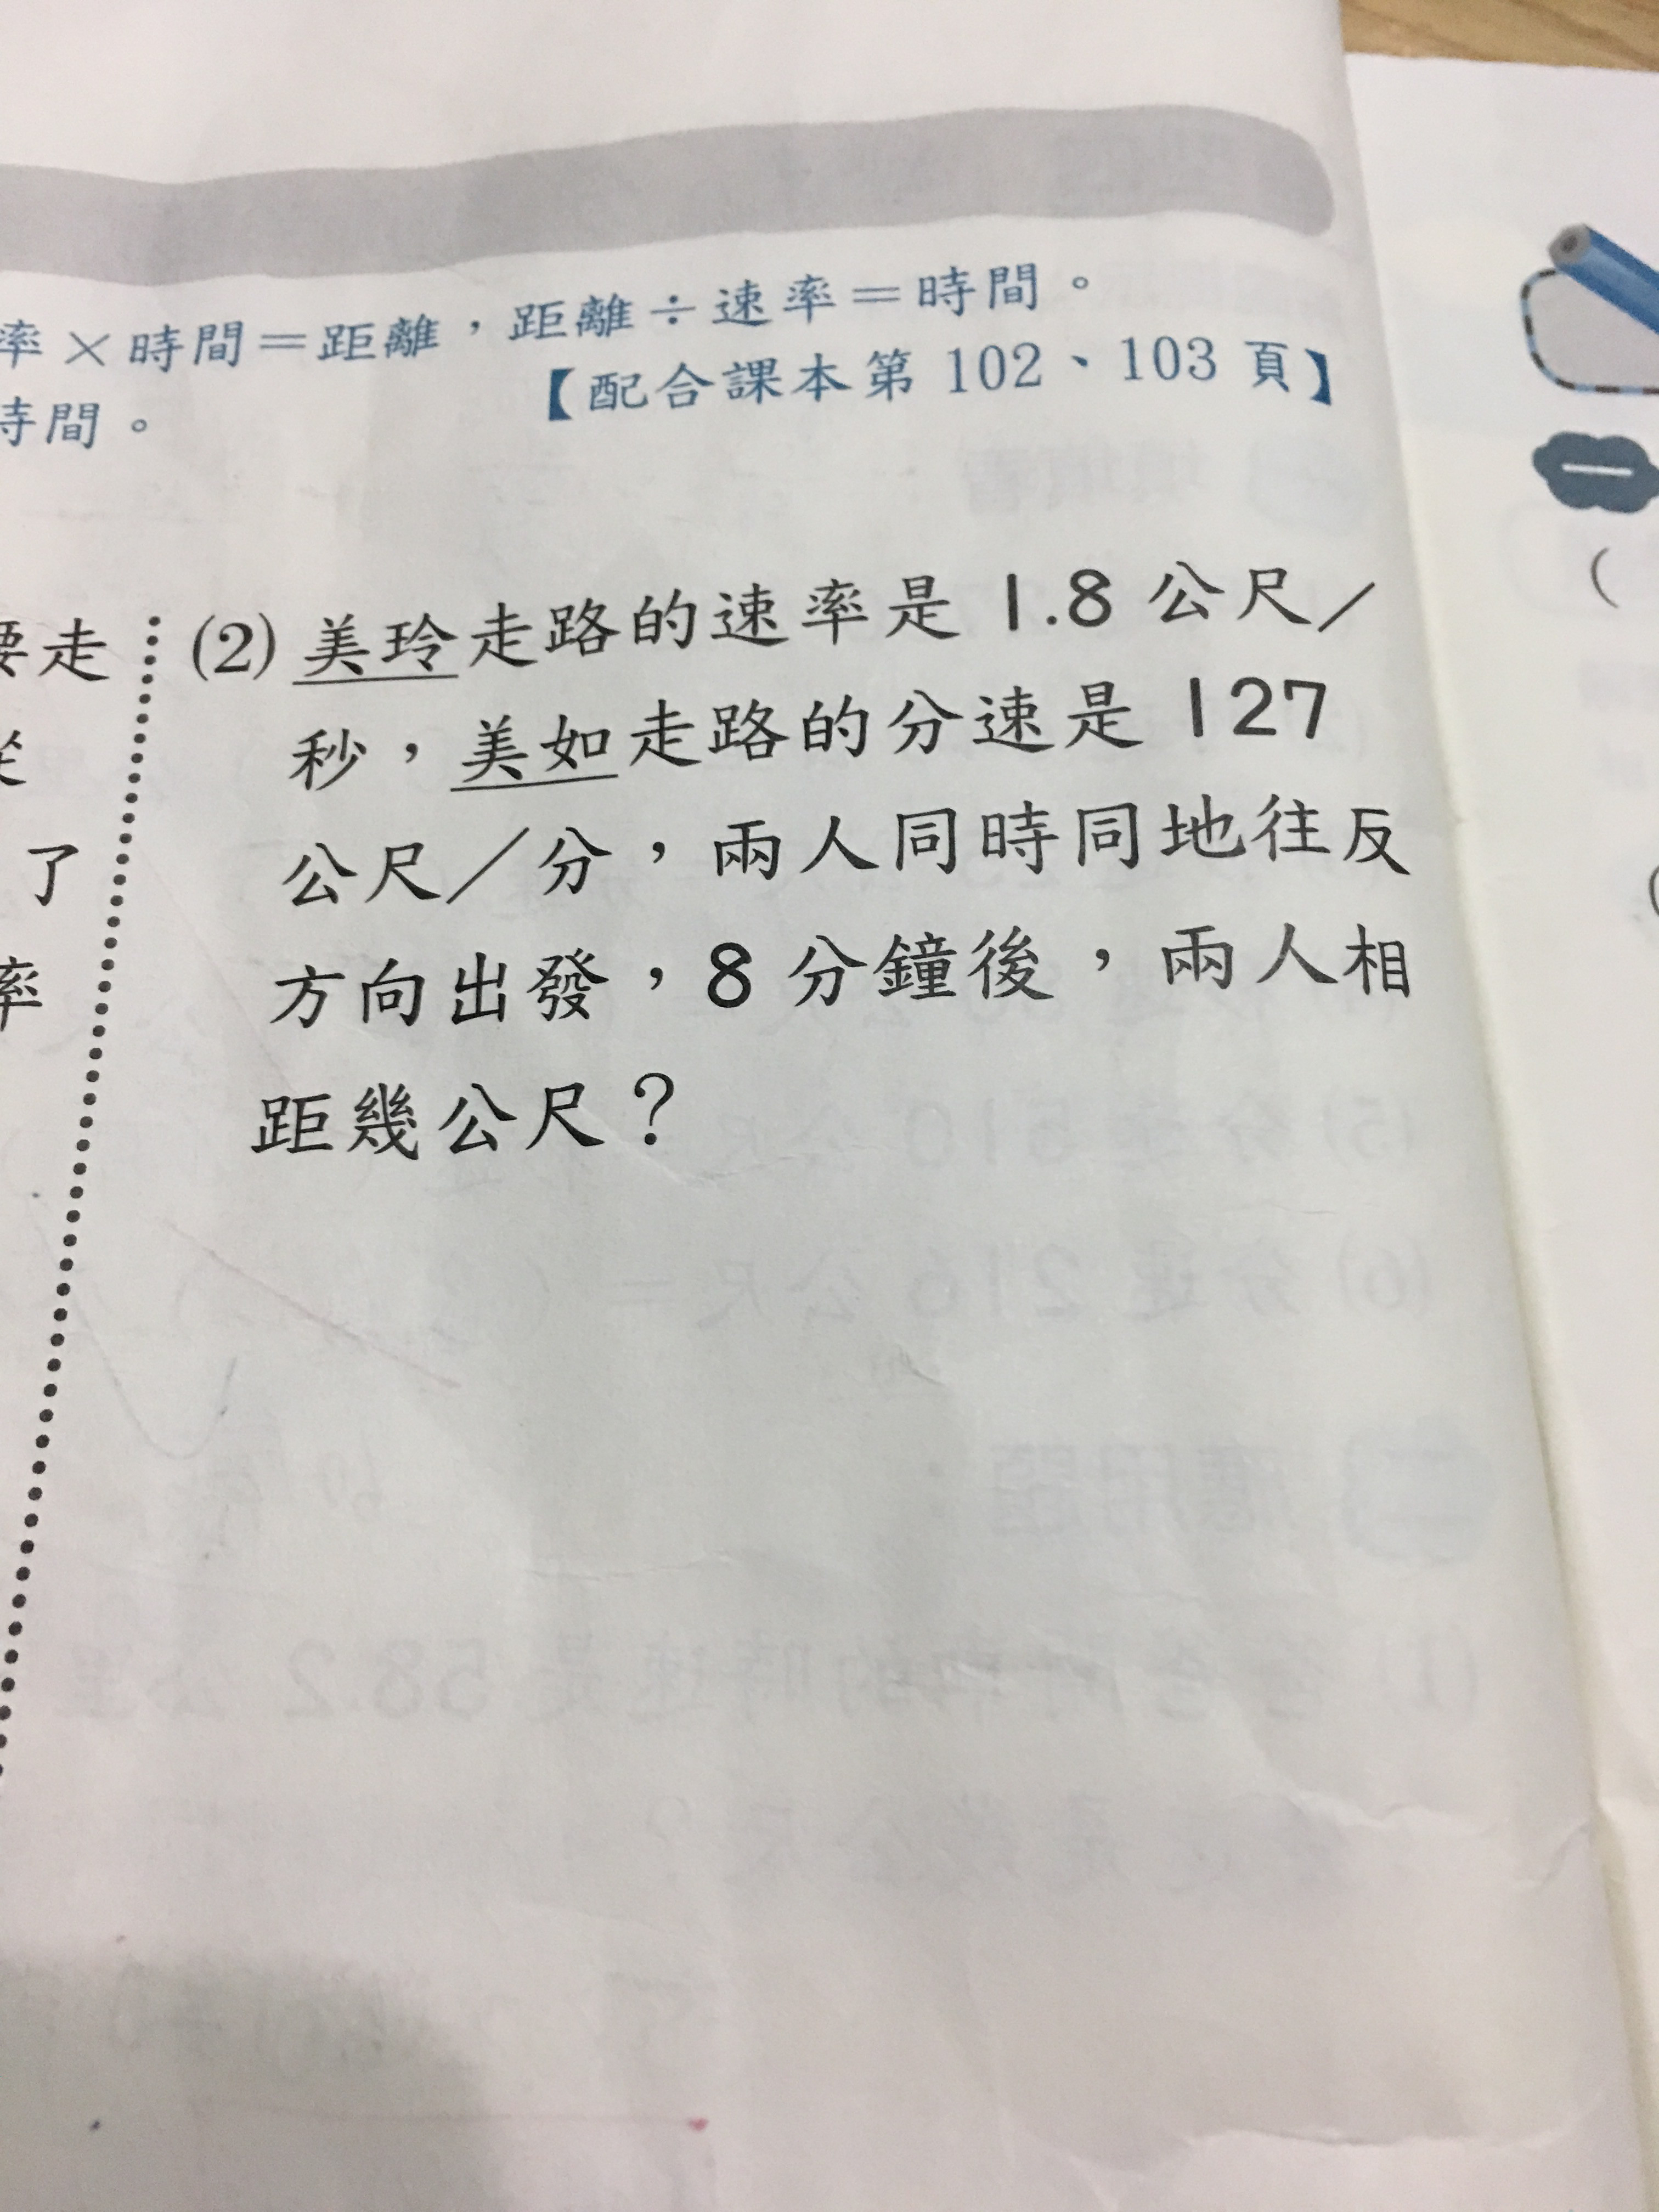 率×時間＝距離，距離÷速率＝時間。
【配合課本第 102、103 頁】
時間。
要走
了
率
(2) 美玲走路的速率是 1.8 公尺／
秒，美如走路的分速是 127
公尺／分，兩人同時同地往反
方向出發，8 分鐘後，兩人相
距幾公尺？
一
(